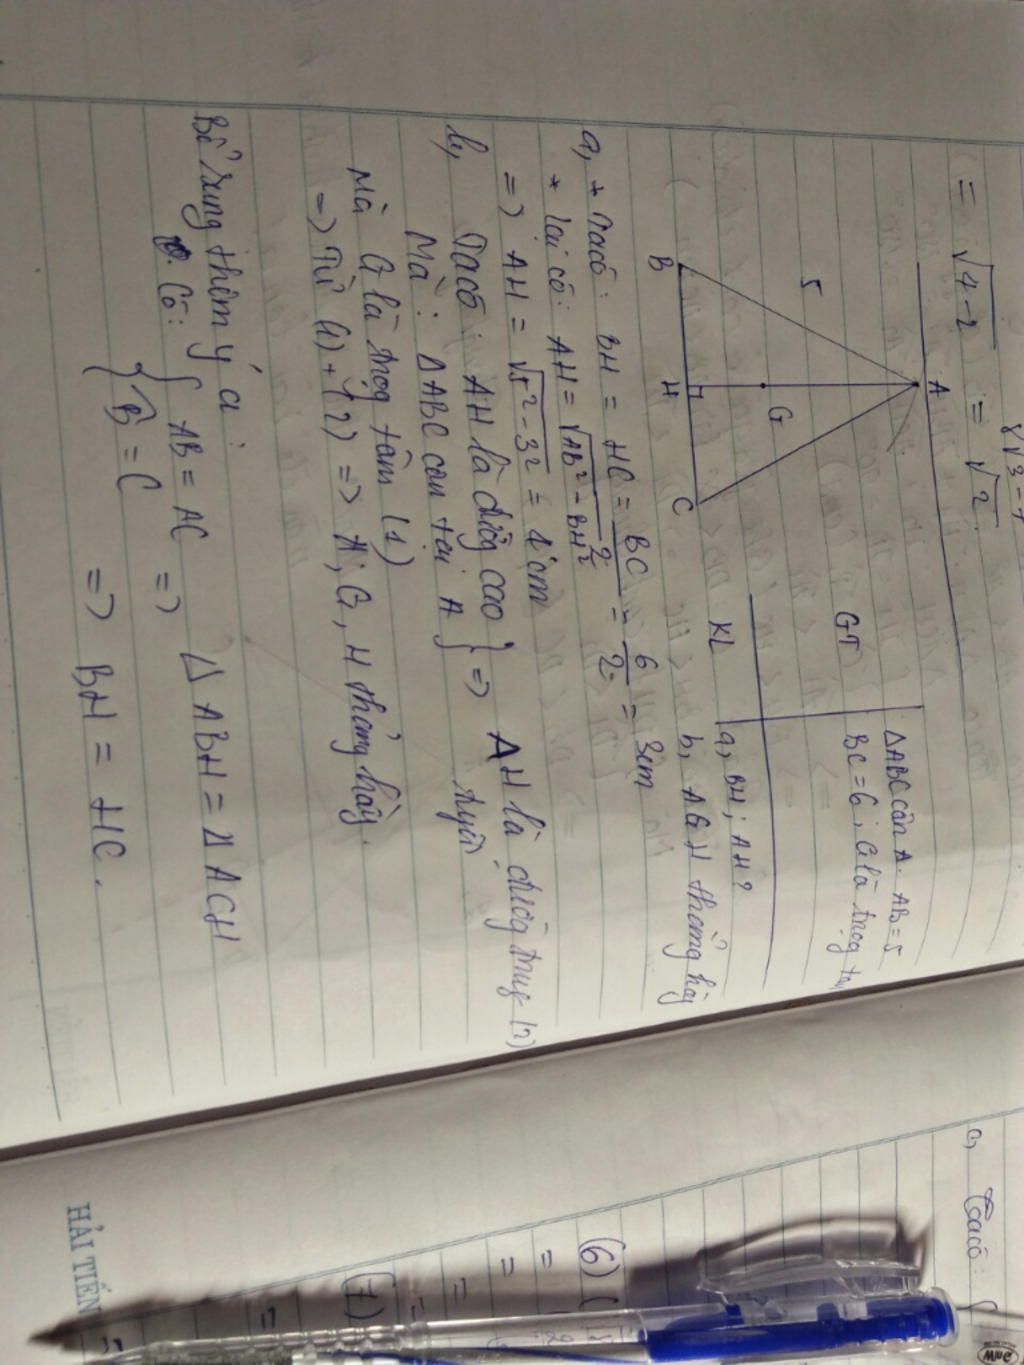 = √4-2 = √2.
A
5
G
B
H
C
GT
ΔABC cân A. AB=5
BC=6; G là trọg tâm
KL
a, BH; AH?
b, AGH thẳng hàg
a, + Tacó: BH = HC = BC/2 = 6/2 = 3cm
* lại có: AH = √AB²-BH²
=> AH = √5²-3² = 4cm
b, Tacó: AH là đườg cao } => AH là đườg trug (2)
Mà: ΔABC cân tại A
tuyến
Mà G là trọg tâm (1)
=> Từ (1)+(2) => A, G, H thẳng hàg.
Bổ sung thêm ý a:
Có: { AB = AC => ΔABH = ΔACH
{ B̂ = C
=> BH = HC.
c, Tacó:
(6)
(7)
HẢI TIẾN